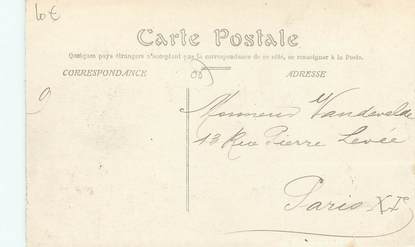 10€
Carte Postale
Quelques pays étrangers n'acceptant pas la correspondance de ce côté, se renseigner à la Poste.
CORRESPONDANCE
ADRESSE
Monsieur Vandevelde
13 Rue Pierre Levée
Paris XIe